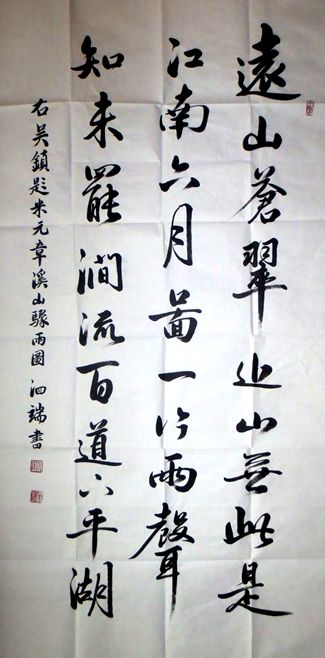 遠山蒼翠近山無此是
江南六月啚一片雨聲
知未罷澗流百道下平湖
右吳鎮題米元章溪山驟雨圖 泗端書